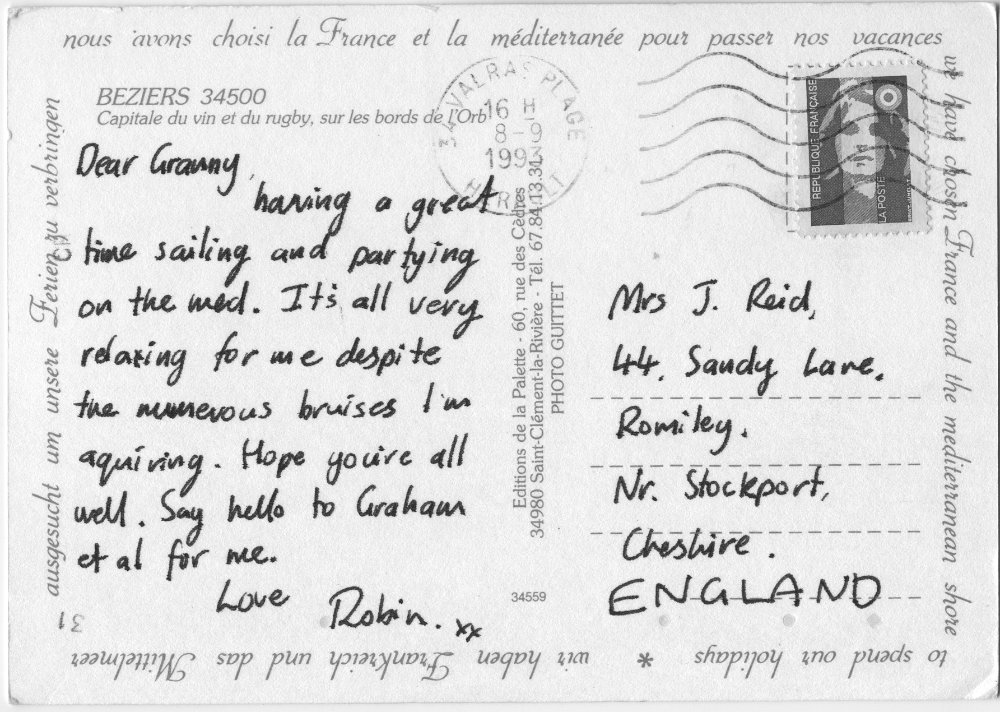 nous avons choisi la France et la méditerranée pour passer nos vacances
we have chosen France and the mediterranean shore
to spend our holidays * wir haben Frankreich und das Mittelmeer
ausgesucht um unsere Ferien zu verbringen
BEZIERS 34500
Capitale du vin et du rugby, sur les bords de l'Orb
34 VALRAS PLAGE
16 H
8 - 9
1993
HERAULT
REPUBLIQUE FRANÇAISE
LA POSTE
Dear Granny,
having a great
time sailing and partying
on the med. It's all very
relaxing for me despite
the numerous bruises I'm
aquiring. Hope you're all
well. Say hello to Graham
et al for me.
Love Robin. xx
Editions de la Palette - 60, rue des Cèdres
34980 Saint-Clément-la-Rivière - Tél. 67.84.13.31
PHOTO GUITTET
34559
Mrs J. Reid,
44, Sandy Lane,
Romiley.
Nr. Stockport,
Cheshire.
ENGLAND
31